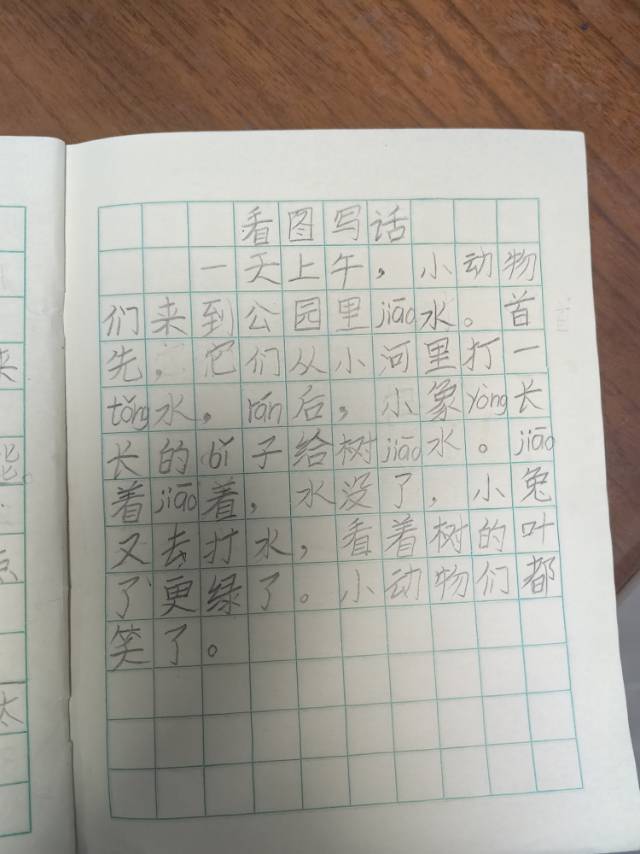 看图写话
一天上午，小动物
们来到公园里jiāo水。首
先，它们从小河里打一
tǒng水，rán后，小象yòng长
长的bí子给树jiāo水。jiāo
着jiāo着，水没了，小兔
又去打水，看着树的叶
了更绿了。小动物们都
笑了。